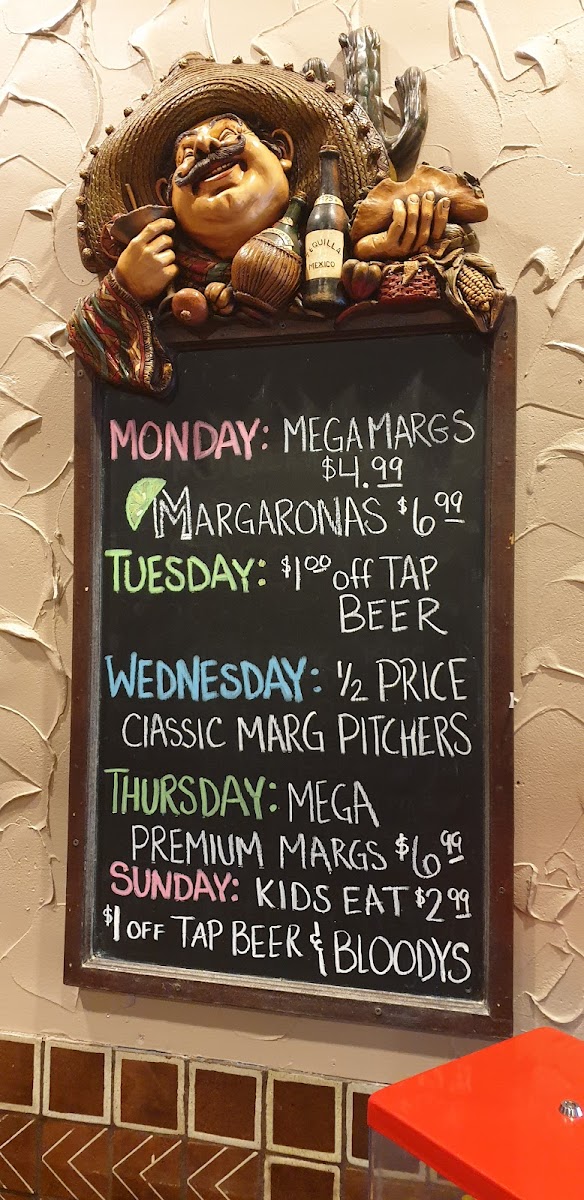 TEQUILLA
MEXICO
MONDAY: MEGA MARGS
$4.99
MARGARONAS $6.99
TUESDAY: $1.00 off TAP
BEER
WEDNESDAY: 1/2 PRICE
CLASSIC MARG PITCHERS
THURSDAY: MEGA
PREMIUM MARGS $6.99
SUNDAY: KIDS EAT $2.99
$1 OFF TAP BEER & BLOODYS